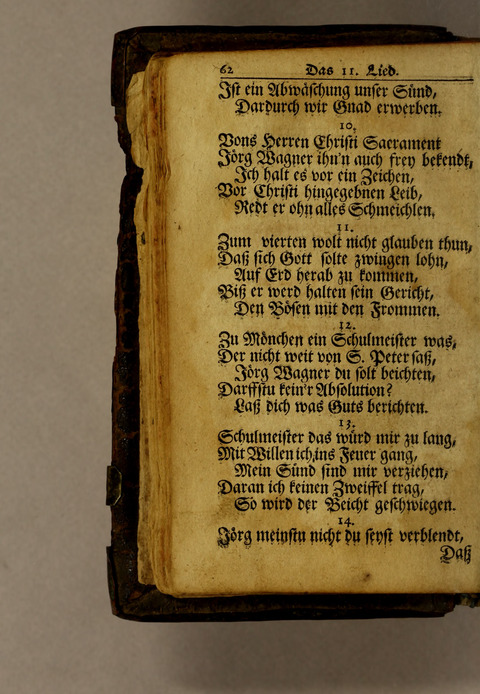 62 Das 11. Lied.
Ist ein Abwäschung unser Sünd,
Dardurch wir Gnad erwerben.
10.
Vons Herren Christi Sacrament
Jörg Wagner ihn'n auch frey bekendt,
Ich halt es vor ein Zeichen,
Vor Christi hingegebnen Leib,
Redt er ohn alles Schmeichlen.
11.
Zum vierten wolt nicht glauben thun,
Daß sich Gott solte zwingen lohn,
Auf Erd herab zu kommen,
Biß er werd halten sein Gericht,
Den Bösen mit den Frommen.
12.
Zu Mönchen ein Schulmeister was,
Der nicht weit von S. Peter saß,
Jörg Wagner du solt beichten,
Darffstu kein'r Absolution?
Laß dich was Guts berichten.
13.
Schulmeister das würd mir zu lang,
Mit Willen ich ins Feuer gang,
Mein Sünd sind mir verziehen,
Daran ich keinen Zweiffel trag,
So wird der Beicht geschwiegen.
14.
Jörg meinstu nicht du seyst verblendt,
Daß